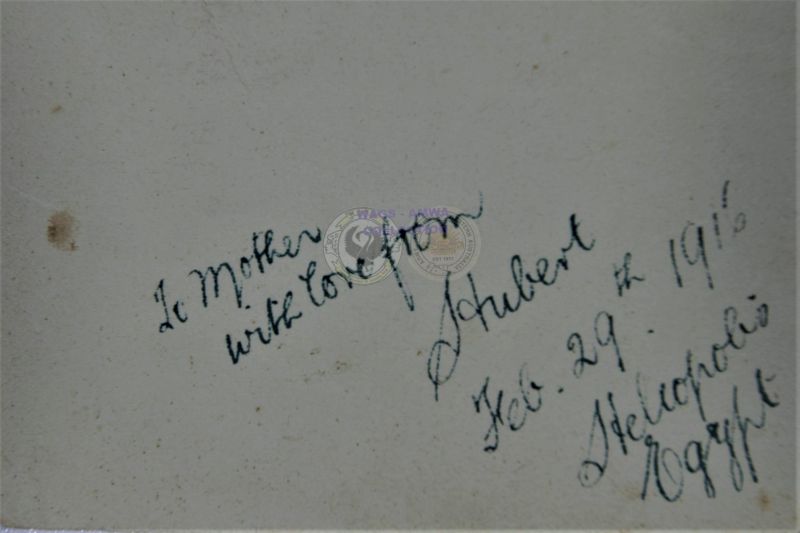 To Mother
with love from
Hubert
Feb. 29th. 1916
Heliopolis
Egypt
WAGS - AMWA